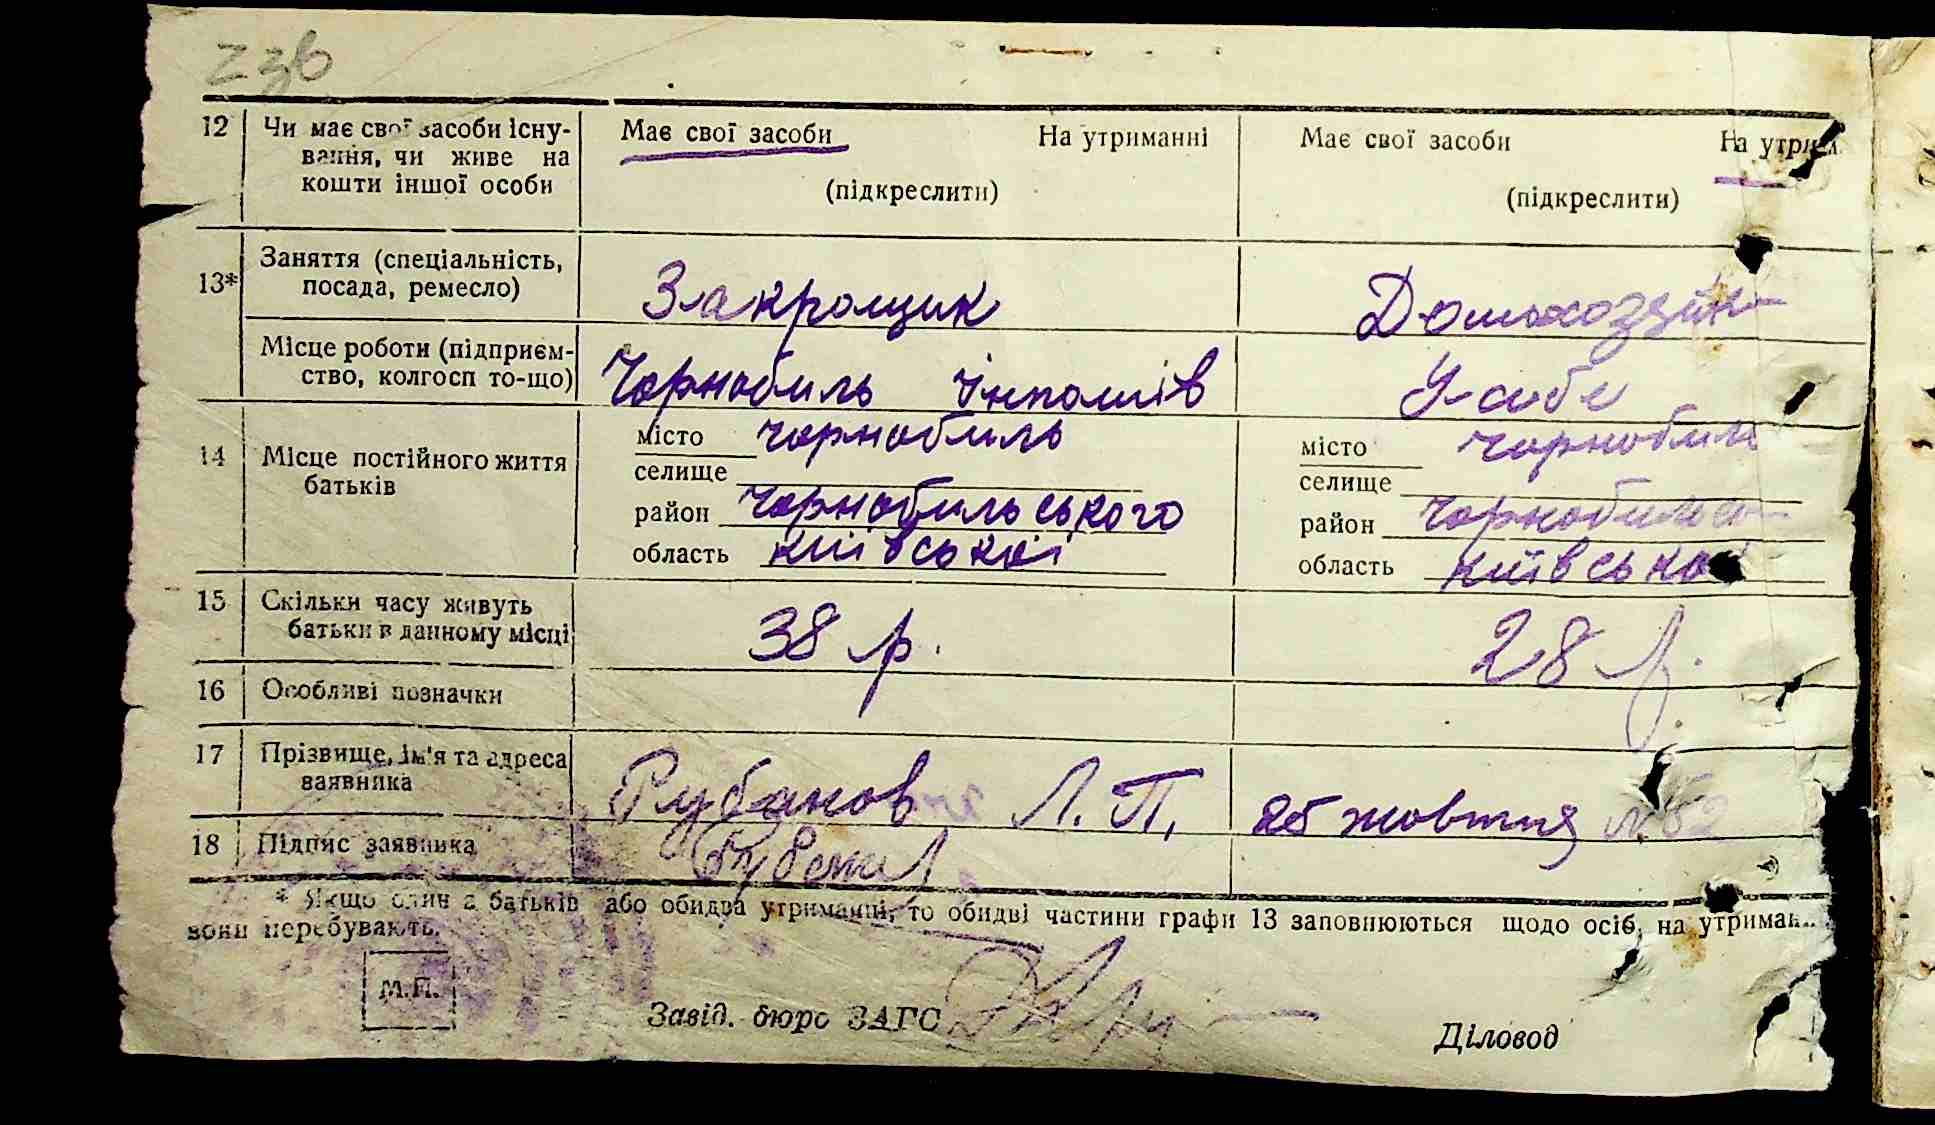 236
12 Чи має свої засоби існу- Має свої засоби На утриманні Має свої засоби На утрим
вання, чи живе на
кошти іншої особи (підкреслити) (підкреслити)
13* Заняття (спеціальність,
посада, ремесло) Закройщик Домохозяйк
Місце роботи (підприєм-
ство, колгосп то-що) Чорнобиль У себе
14 Місце постійного життя
батьків
місто Чорнобиль місто Чорнобиль
селище селище
район Чорнобильського район Чорнобильсь
область Київської область Київсько
15 Скільки часу живуть
батьки в данному місці 38 р. 28 р.
16 Особливі позначки
17 Прізвище, ім'я та адреса
заявника Рубанов Л. П. 25 жовтня
18 Підпис заявника
* Якщо один з батьків або обидва утриманні, то обидві частини графи 13 заповнюються щодо осіб, на утриман
вони перебувають.
М.П.
Завід. бюро ЗАГС
Діловод